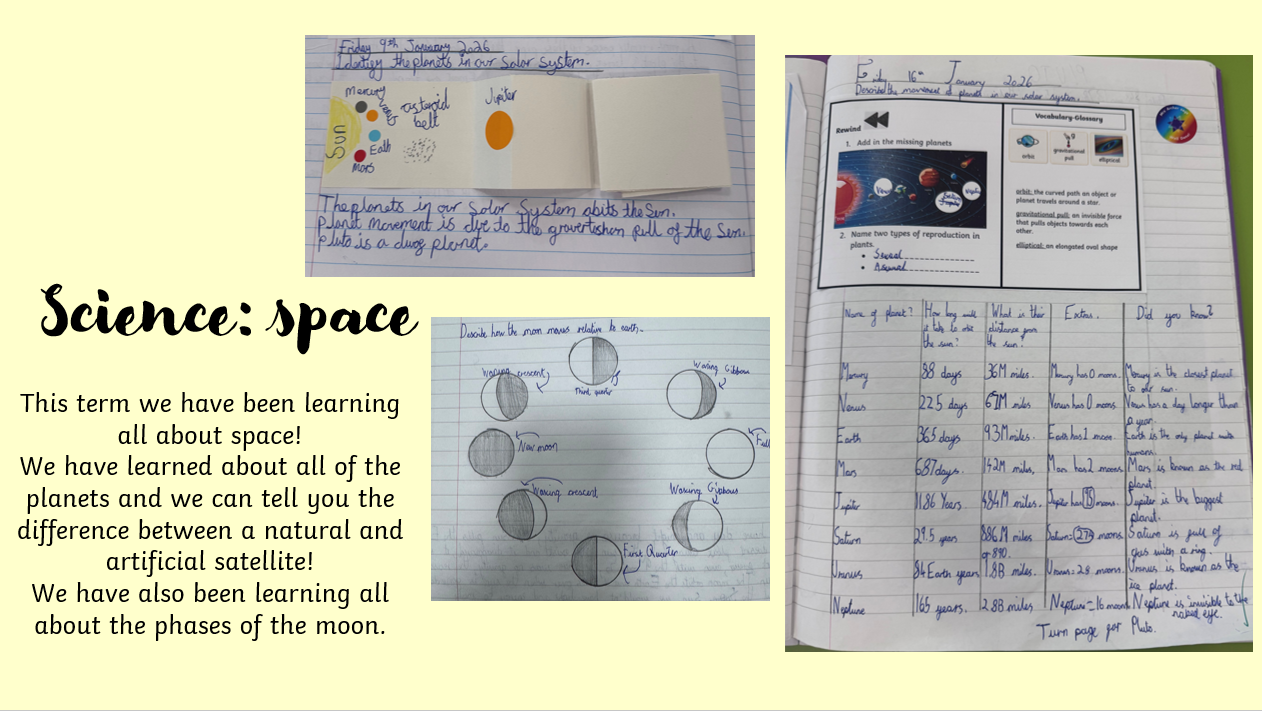 Science: space
This term we have been learning
all about space!
We have learned about all of the
planets and we can tell you the
difference between a natural and
artificial satellite!
We have also been learning all
about the phases of the moon.
Friday 9th January 2026
Identify the planets in our Solar System.
Sun
Mercury
Earth
Mars
asteroid
belt
Jupiter
The planets in our Solar System
the Sun.
Planet movement is due to the pull of the Sun.
Pluto is a planet.
Describe how the moon moves relative to earth.
Third quarter
Waxing Gibbous
Full
Waxing Gibbous
First Quarter
Waxing crescent
New moon
crescent
16th January 2026
Describe the movement of planets in our solar system.
Rewind
1. Add in the missing planets
2. Name two types of reproduction in
plants.
• Sexual
• Asexual
Vocabulary-Glossary
orbit
gravitational
pull
elliptical
orbit: the curved path an object or
planet travels around a star.
gravitational pull: an invisible force
that pulls objects towards each
other.
elliptical: an elongated oval shape
Name of planet? How long will it take to orbit the sun? What is their distance from the sun? Extras. Did you know?
Mercury 88 days 36M miles. Mercury has 0 moons. Mercury is the closest planet to our sun.
Venus 225 days 67M miles Venus has 0 moons. Venus has a day longer than a year.
Earth 365 days 93M miles. Earth has 1 moon. Earth is the only planet with humans.
Mars 687 days. 142M miles. Mars has 2 moons. Mars is known as the red planet.
Jupiter 11.86 Years 484M miles. Jupiter has moons. Jupiter is the biggest planet.
Saturn 29.5 years 886M miles or 890. Saturn = 274 moons. Saturn is full of gas with a ring.
Uranus 84 Earth years 1.8B miles. Uranus = 28 moons. Uranus is known as the ice planet.
Neptune 165 years. 2.8B miles Neptune = 16 moons Neptune is invisible to the naked eye.
Turn page for Pluto.